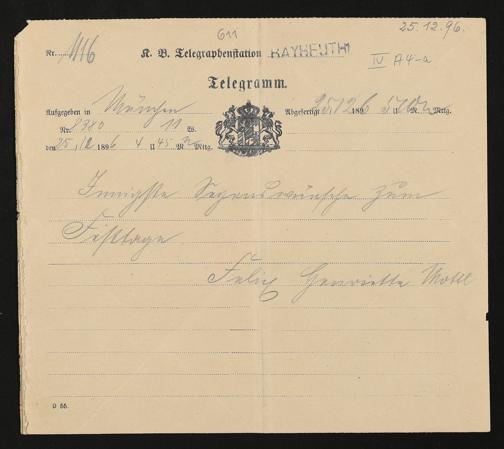 25.12.96.
611
Nr. 1116 K. B. Telegraphenstation BAYREUTH
IV A4-a
Telegramm.
Aufgegeben in München Abgefertigt 25/12 1896 5 U M Mttg.
Nr. 8980 11 W.
den 25./12 1896 4 U 45 M Mttg.
Innigste Segenswünsche zum
Festtage
Felix Henriette Mottl
D 66.